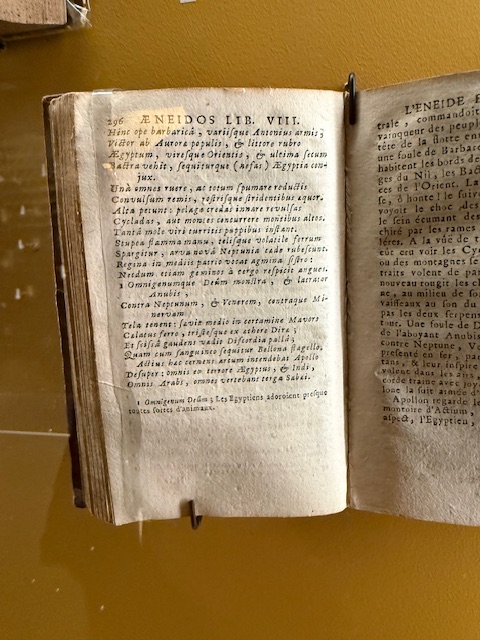 296 ÆNEIDOS LIB. VIII.
Hinc ope barbaricâ, variisque Antonius armis;
Victor ab Auroræ populis, & littore rubro
Ægyptum, viresque Orientis, & ultima secum
Bactra vehit, sequiturque (nefas) Ægyptia con-
jux.
Unà omnes ruere, ac totum spumare reductis
Convulsum remis, rostrisque stridentibus æquor.
Alta petunt; pelago credas innare revulsas
Cycladas, aut montes concurrere montibus altos.
Tantâ mole viri turritis puppibus instant.
Stupea flamma manu, telisque volatile ferrum
Spargitur, arva novâ Neptunia cæde rubescunt.
Regina in mediis patrio vocat agmina sistro:
Necdum etiam geminos à tergo respicit angues.
1 Omnigenumque Deûm monstra, & latrator
Anubis,
Contra Neptunum, & Venerem, contraque Mi-
nervam
Tela tenent: sævit medio in certamine Mavors
Cælatus ferro, tristesque ex æthere Diræ;
Et scissâ gaudens vadit Discordia pallâ;
Quam cum sanguineo sequitur Bellona flagello.
Actius hæc cernens arcum intendebat Apollo
Desuper: omnis eo terrore Ægyptus, & Indi,
Omnis Arabs, omnes vertebant terga Sabæi.
1 Omnigenum Deûm; Les Egyptiens adoroient presque
toutes sortes d'animaux.
L'ENEIDE
trale, commandoit
vainqueur des peupl
tête de la flotte enn
une foule de Barbare
habitent les bords de
ges du Nil, les Bact
ces de l'Orient. La
se, ô honte! le suiv
voyoit le choc des
le sein écumant des
chiré par les rames
iéres. A la vûe de t
eût cru voir les Cyc
ou des montagnes se
traits volent de par
nouveau rougit les ch
ne, au milieu de son
vaisseaux au son du
pas les deux serpen
tour. Une foule de D
de l'aboyant Anubis
contre Neptune, V
présenté en fer, par
rans, & leur inspire
volent dans les airs,
corde traîne avec joye
lone la suit armée d'
Apollon regarde le
montoire d'Actium,
aspect, l'Egyptien,